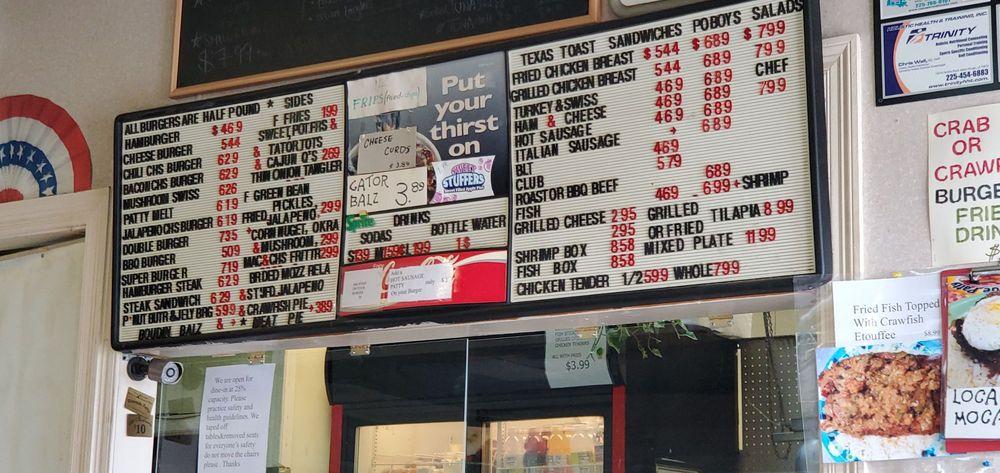 $7.99
ALL BURGERS ARE HALF POUND * SIDES
HAMBURGER $469 F FRIES 199
CHEESE BURGER 544 SWEET, POTFRS &
CHILI CHS BURGER 629 & TATOR, TOTS
BACON CHS BURGER 629 & CAJUN O'S 269
MUSHROOM SWISS 629 THIN ONION, TANGLER
PATTY MELT 626 F GREEN BEAN
JALAPENO CHS BURGER 619 PICKLES, 299
DOUBLE BURGER 735 FRIED, JALAPENO,
BBQ BURGER 509 CORN NUGET, OKRA
SUPER BURGER 719 & MUSHROOM, 299
HAMBURGER STEAK 629 MAC & CHS FRITTR 299
STEAK SANDWICH 629 BRDED MOZZ RELA
P'NOT BUTR & JELY BRG 599 & STSFD JALAPENO
BOUDIN BALZ & CRAWFISH PIE 389
MEAT PIE
FRIES
CHEESE CURDS
GATOR BALZ 3.89
Put your thirst on
STUFFERS
DRINKS
SODAS BOTTLE WATER
$139 159 L 199 1$
Add a HOT SAUSAGE PATTY
On your Burger
only
TEXAS TOAST SANDWICHES POBOYS SALADS
FRIED CHICKEN BREAST $544 $689 $799
GRILLED CHICKEN BREAST 544 689 799
TURKEY & SWISS 469 689 CHEF
HAM & CHEESE 469 689 799
HOT SAUSAGE 469 689
ITALIAN SAUSAGE 689
BLT 469
CLUB 579
ROAST OR BBQ BEEF 689
FISH 469 699 + SHRIMP
GRILLED CHEESE 295 GRILLED TILAPIA 899
295 OR FRIED
SHRIMP BOX 858 MIXED PLATE 1199
FISH BOX 858
CHICKEN TENDER 1/2 599 WHOLE 799
HEALTH & TRAINING, INC.
TRINITY
Holistic Nutritional Counseling
Personal Training
Sports Specific Conditioning
Golf Conditioning
225-454-6883
CRAB
OR
CRAWF
BURGE
FRIE
DRIN
Fried Fish Topped
With Crawfish
Etouffee
$8.99
LOCA
MOCA
ALL WITH FRIES
$3.99
We are open for
dine-in at 25%
capacity. Please
practice safety and
health guidelines. We
taped off
tables&removed seats
for everyone's safety
do not move the chairs
please . Thanks
$10